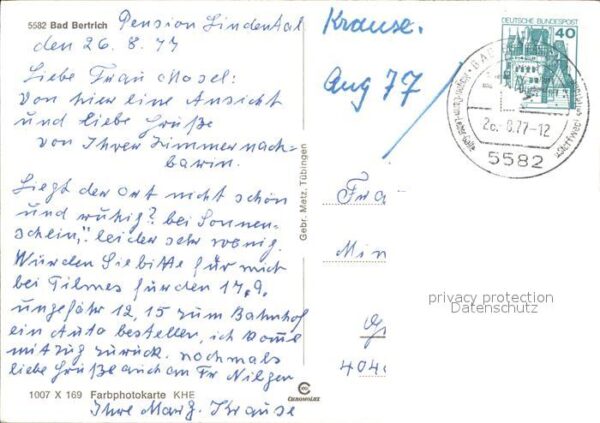 5582 Bad Bertrich Pension Lindental
den 26. 8. 77
Liebe Frau Mosel:
Von hier eine Ansicht
und liebe Grüße
von Ihrer Zimmernach-
barin.
Liegt der Ort nicht schön
und ruhig? bei Sonnen-
schein," leider sehr wenig.
Würden Sie bitte für mich
bei Tilmes für den 17.9.
ungefähr 12,15 zum Bahnhof
ein Auto bestellen, ich komme
mit Zug zurück. nochmals
liebe Grüße auch an Fr Nilgen
Ihre Marg. Krause
1007 X 169 Farbphotokarte KHE
CEKOMALEX
Gebr. Metz, Tübingen
Krause.
Aug 77
DEUTSCHE BUNDESPOST
40
77-12
5582
Fra
Min
404
privacy protection
Datenschutz